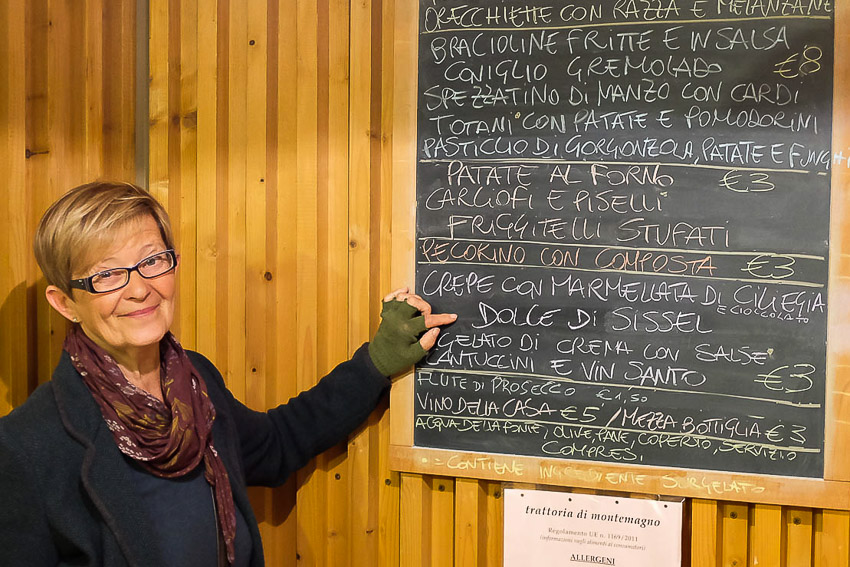 ORECCHIETTE CON RAZZA E MELANZANE
BRACIOLINE FRITTE E IN SALSA
CONIGLIO GREMOLADO €8
SPEZZATINO DI MANZO CON CARDI
TOTANI CON PATATE E POMODORINI
PASTICCIO DI GORGONZOLA, PATATE E FUNGHI
PATATE AL FORNO €3
CARCIOFI E PISELLI
FRIGGITELLI STUFATI
PECORINO CON COMPOSTA €3
CREPE CON MARMELLATA DI CILIEGIA
E CIOCCOLATO
DOLCE DI SISSEL
GELATO DI CREMA CON SALSE
CANTUCCINI E VIN SANTO €3
FLUTE DI PROSECCO €1,50
VINO DELLA CASA €5 / MEZZA BOTTIGLIA €3
ACQUA DELLA FONTE, OLIVE, PANE, COPERTO, SERVIZIO
COMPRESI
• = CONTIENE INGREDIENTE SURGELATO
trattoria di montemagno
Regolamento UE n. 1169/2011
(informazioni sugli alimenti ai consumatori)
ALLERGENI